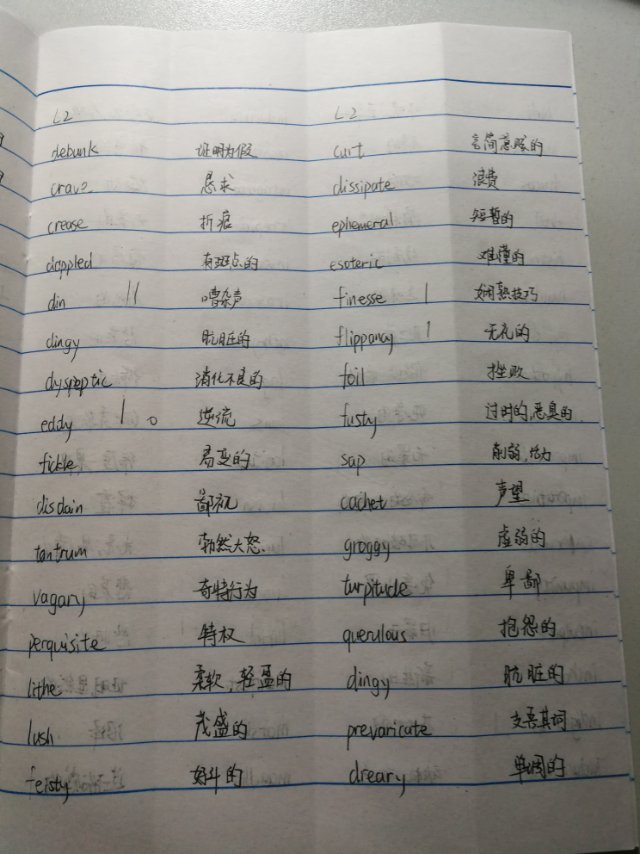 L2 L2
debunk 证明为假 curt 言简意赅的
crave 恳求 dissipate 浪费
crease 折痕 ephemeral 短暂的
dappled 有斑点的 esoteric 难懂的
din 嘈杂声 finesse 娴熟技巧
dingy 肮脏的 flippancy 无礼的
dyspeptic 消化不良的 foil 挫败
eddy 逆流 fusty 过时的,恶臭的
fickle 易变的 sap 削弱,活力
disdain 鄙视 cachet 声望
tantrum 勃然大怒 groggy 虚弱的
vagary 奇特行为 turpitude 卑鄙
perquisite 特权 querulous 抱怨的
lithe 柔软,轻盈的 dingy 肮脏的
lush 茂盛的 prevaricate 支吾其词
feisty 好斗的 dreary 单调的